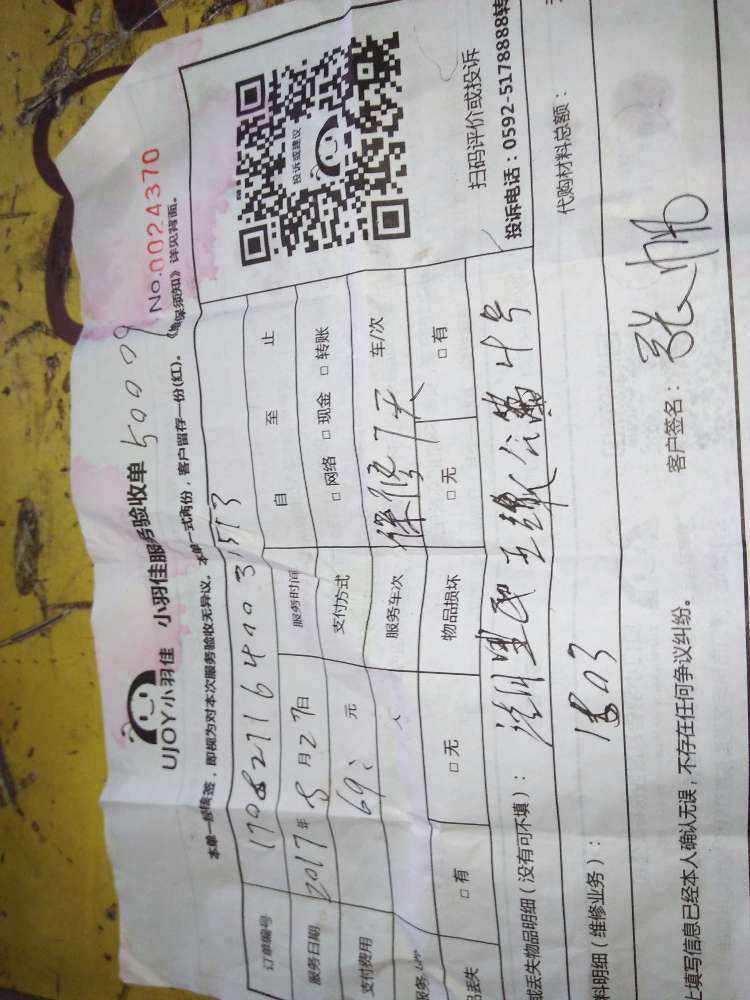 UJOY小羽佳 小羽佳服务验收单 50009
No.0024370
本单一经签, 即视为对本次服务验收无异议。本单一式两份，客户留存一份(红)。 《 保须知》详见背面。
投诉或建议
订单编号
服务日期 2017年8月27日 服务时间 自 至 止
支付费用 69 元 支付方式 □网络 □现金 □转账
服务 人 服务车次 保修7天 车/次
丢失 □有 □无 物品损坏 □无 □有
扫码评价或投诉
投诉电话：0592-5178888转
或丢失物品明细（没有可不填）： 公寓 4号
料明细（维修业务）： 1803 代购材料总额：
上填写信息已经本人确认无误，不存在任何争议纠纷。 客户签名： 张